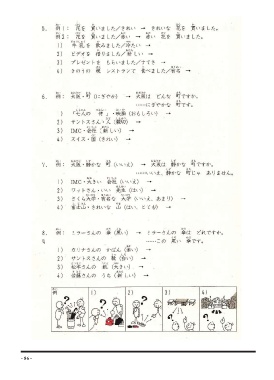 5. 例1： 花を 買いました／きれい → きれいな 花を 買いました。
例2： 花を 買いました／赤い → 赤い 花を 買いました。
1) 牛乳を 飲みました／冷たい →
2) ビデオを 借りました／新しい →
3) プレゼントを もらいました／すてき →
4) きのうの 晩 レストランで 食べました／有名 →
6. 例： 大阪・町（にぎやか） → 大阪は どんな 町ですか。
……にぎやかな 町です。
1) 「七人の 侍」・映画（おもしろい） →
2) サントスさん・人（親切） →
3) IMC・会社（新しい） →
4) スイス・国（きれい） →
7. 例： 大阪・静かな 町（いいえ） → 大阪は 静かな 町ですか。
……いいえ、静かな 町じゃ ありません。
1) IMC・大きい 会社（いいえ） →
2) ワットさん・いい 先生（はい） →
3) さくら大学・有名な 大学（いいえ、あまり） →
4) 富士山・きれいな 山（はい、とても） →
8. 例： ミラーさんの 傘（黒い） → ミラーさんの 傘は どれですか。
……この 黒い 傘です。
1) カリナさんの かばん
2) サントスさんの
3) 松本さんの 机（大きい） →
4) 佐藤さんの うち（新しい） →
例 1) 2) 3) 4)